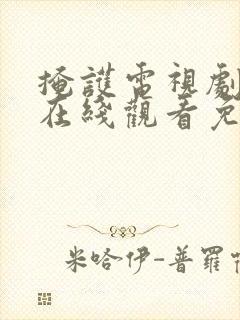 掩護電視劇
在綫觀看免
米哈伊-普羅